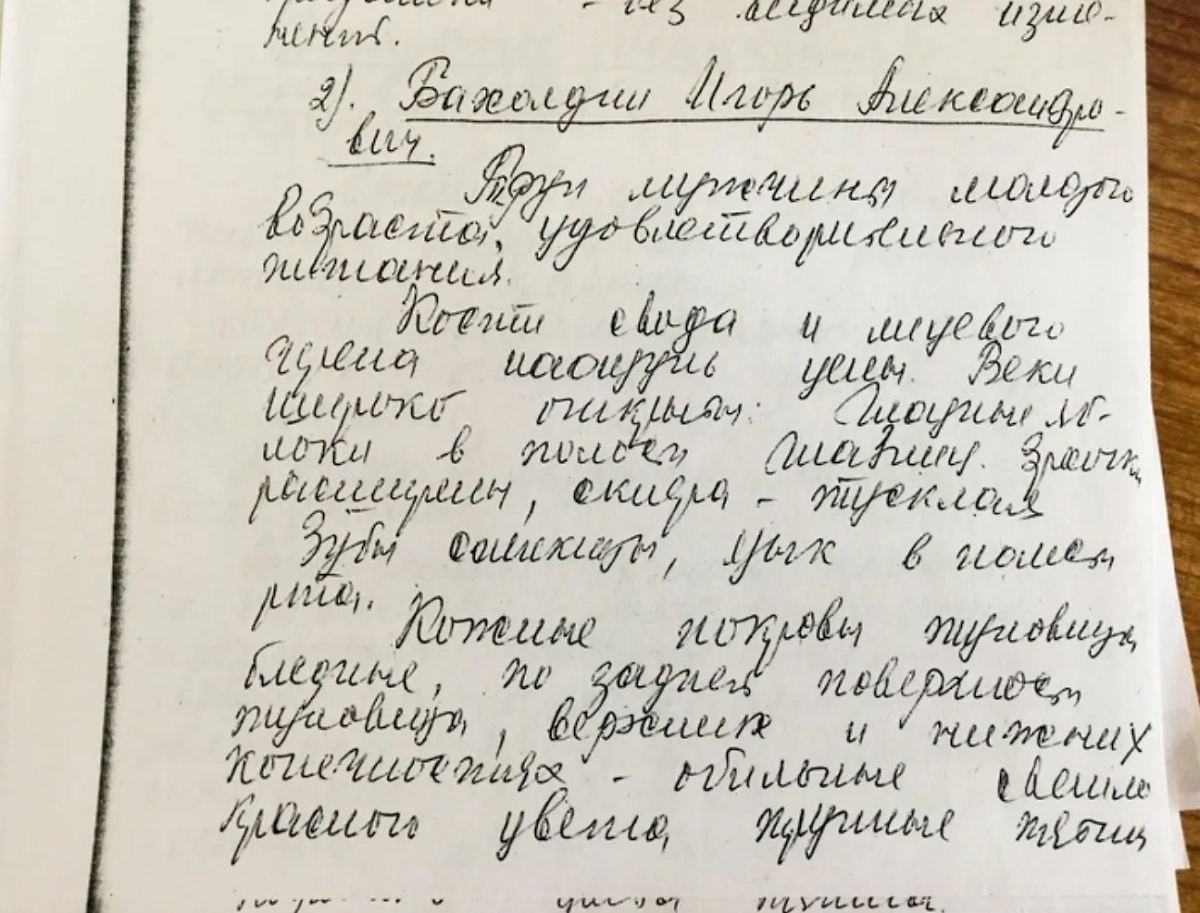 - без видимых изме-
нений.
2). Бахолдин Игорь Александро-
вич.
Труп мужчины молодого
возраста, удовлетворительного
питания.
Кости свода и лицевого
черепа наощупь целы. Веки
широко открыты. Глазные яб-
локи в полости глазниц. Зрачки
расширены, склера - тусклая
Зубы сомкнуты, язык в полости
рта.
Кожные покровы туловища
бледные, по задней поверхности
туловища, верхних и нижних
конечностях - обильные светло
красного цвета, трупные пятна